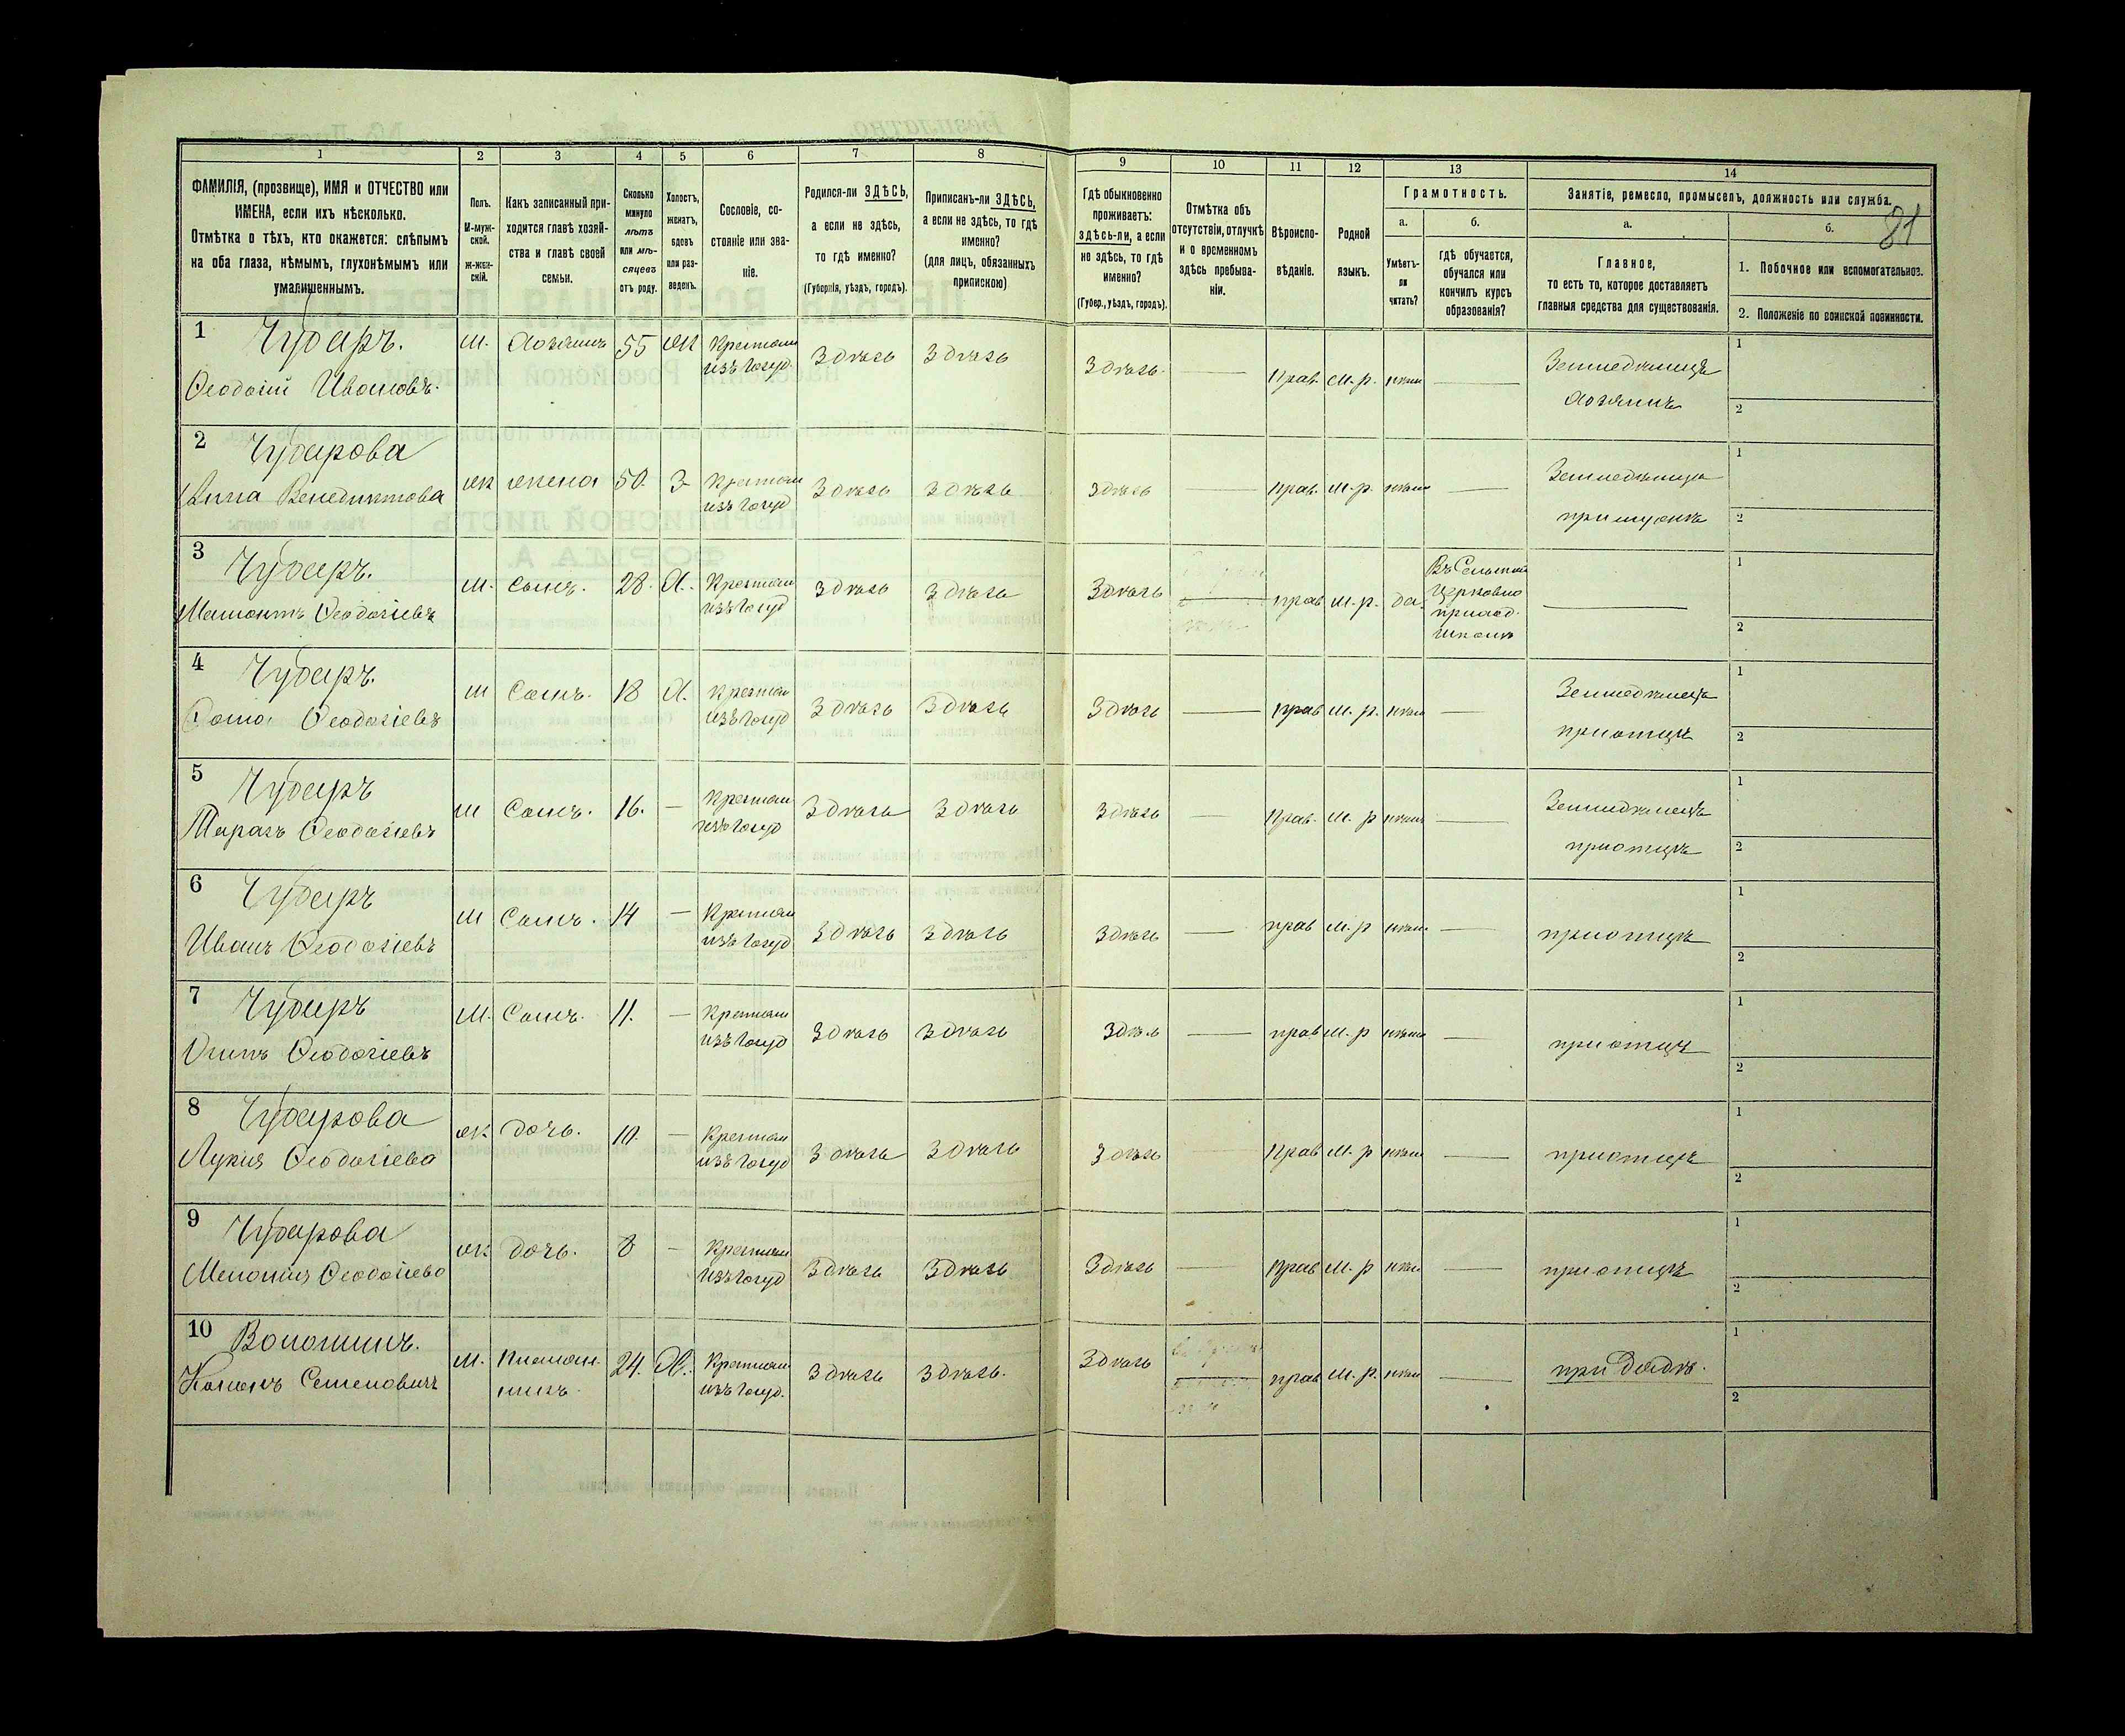 81
1 2 3 4 5 6 7 8 9 10 11 12 13 14
ФАМИЛІЯ, (прозвище), ИМЯ и ОТЧЕСТВО или
ИМЕНА, если ихъ нѣсколько.
Отмѣтка о тѣхъ, кто окажется: слѣпымъ
на оба глаза, нѣмымъ, глухонѣмымъ или
умалишеннымъ.
Полъ.
М-муж-
ской.
ж-жен-
скій.
Какъ записанный при-
ходится главѣ хозяй-
ства и главѣ своей
семьи.
Сколько
минуло
лѣтъ
или мѣ-
сяцевъ
отъ роду.
Холостъ,
женатъ,
вдовъ
или раз-
веденъ.
Сословіе, со-
стояніе или зва-
ніе.
Родился-ли ЗДѢСЬ,
а если не здѣсь,
то гдѣ именно?
(Губернія, уѣздъ, городъ).
Приписанъ-ли ЗДѢСЬ,
а если не здѣсь, то гдѣ
именно?
(для лицъ, обязанныхъ
припискою)
Гдѣ обыкновенно
проживаетъ:
здѣсь-ли, а если
не здѣсь, то гдѣ
именно?
(Губер., уѣздъ, городъ).
Отмѣтка объ
отсутствіи, отлучкѣ
и о временномъ
здѣсь пребыва-
ніи.
Вѣроиспо-
вѣданіе.
Родной
языкъ.
Грамотность.
а. б.
Умѣетъ-
ли
читать?
гдѣ обучается,
обучался или
кончилъ курсъ
образованія?
Занятіе, ремесло, промыселъ, должность или служба.
а. б.
Главное,
то есть то, которое доставляетъ
главныя средства для существованія.
1. Побочное или вспомогательное.
2. Положеніе по воинской повинности.
1 Чубарь. м. Хозяинъ 55 Ж Крестьян Здѣсь Здѣсь Здѣсь. — Прав. М. р. — Земледѣлецъ 1
Феодосій Ивановъ. изъ Госуд. Хозяинъ 2
2 Чубарова ж жена 50. З Крестьян Здѣсь Здѣсь Здѣсь — прав. М. р. — 1
Анна Бенедиктова изъ Госуд при мужѣ 2
3 Чубарь. м. Сынъ. 28. Х. Крестьян Здѣсь Здѣсь Здѣсь прав М. р. да. Въ Сельской — 1
Мамонтъ Феодосіевъ изъ Госуд Церковно
приход. 2
школѣ
4 Чубарь. м Сынъ. 18 Х. Крестьян Здѣсь Здѣсь Здѣсь — прав М. р. — 1
Фома Феодосіевъ изъ Госуд при отцѣ 2
5 Чубарь м Сынъ. 16. — Крестьян Здѣсь Здѣсь Здѣсь — Прав. М. р — Земледѣлецъ 1
Тарасъ Феодосіевъ изъ Госуд при отцѣ 2
6 Чубарь м Сынъ. 14 — Крестьян Здѣсь Здѣсь Здѣсь — прав М. р — при отцѣ 1
Иванъ Феодосіевъ изъ Госуд 2
7 Чубарь М. Сынъ. 11. — Крестьян Здѣсь Здѣсь Здѣсь — прав М. р — при отцѣ 1
Осипъ Феодосіевъ изъ Госуд 2
8 Чубарова ж. дочь. 10. — Крестьян Здѣсь Здѣсь Здѣсь Прав М. р — при отцѣ 1
Лукія Феодосіева изъ Госуд 2
9 Чубарова ж дочь. 8 — Крестьян Здѣсь Здѣсь Здѣсь — прав М. р — при отцѣ 1
Меланія Феодосіева изъ Госуд 2
10 Волошинъ. М. Племян- 24. Х. Крестьян Здѣсь Здѣсь. Здѣсь прав М. р. — при дядѣ. 1
Семеновичъ никъ. изъ Госуд. 2